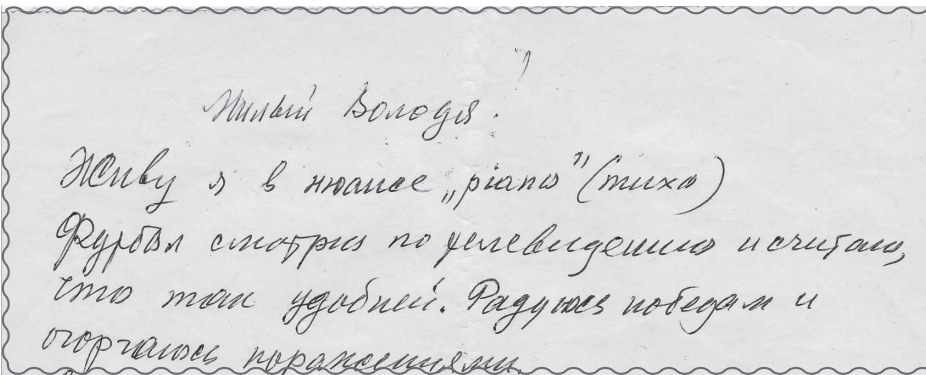 Милый Володя!
Живу я в нюансе „piano” (тихо)
Футбол смотрю по телевидению и считаю,
что так удобней. Радуюсь победам и
огорчаюсь поражениями.